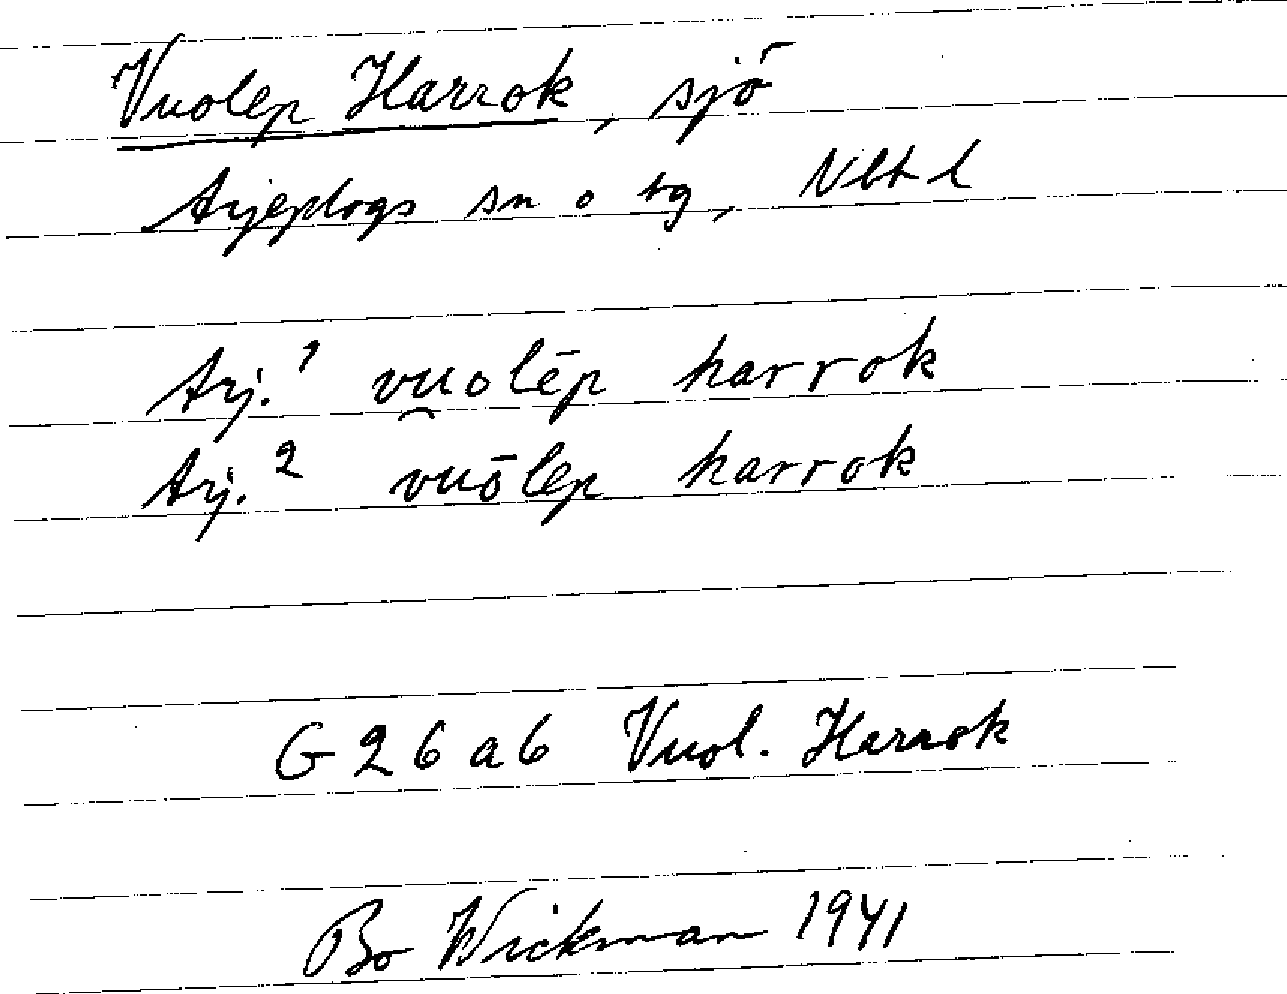 Vuolep Harrok, sjö
Arjeplogs sn o tg, Nbtl
Arj.¹ vu̯olēp harrok
Arj.² vuōlep harrok
G 26 a6 Vuol. Harrok
Bo Wickman 1941